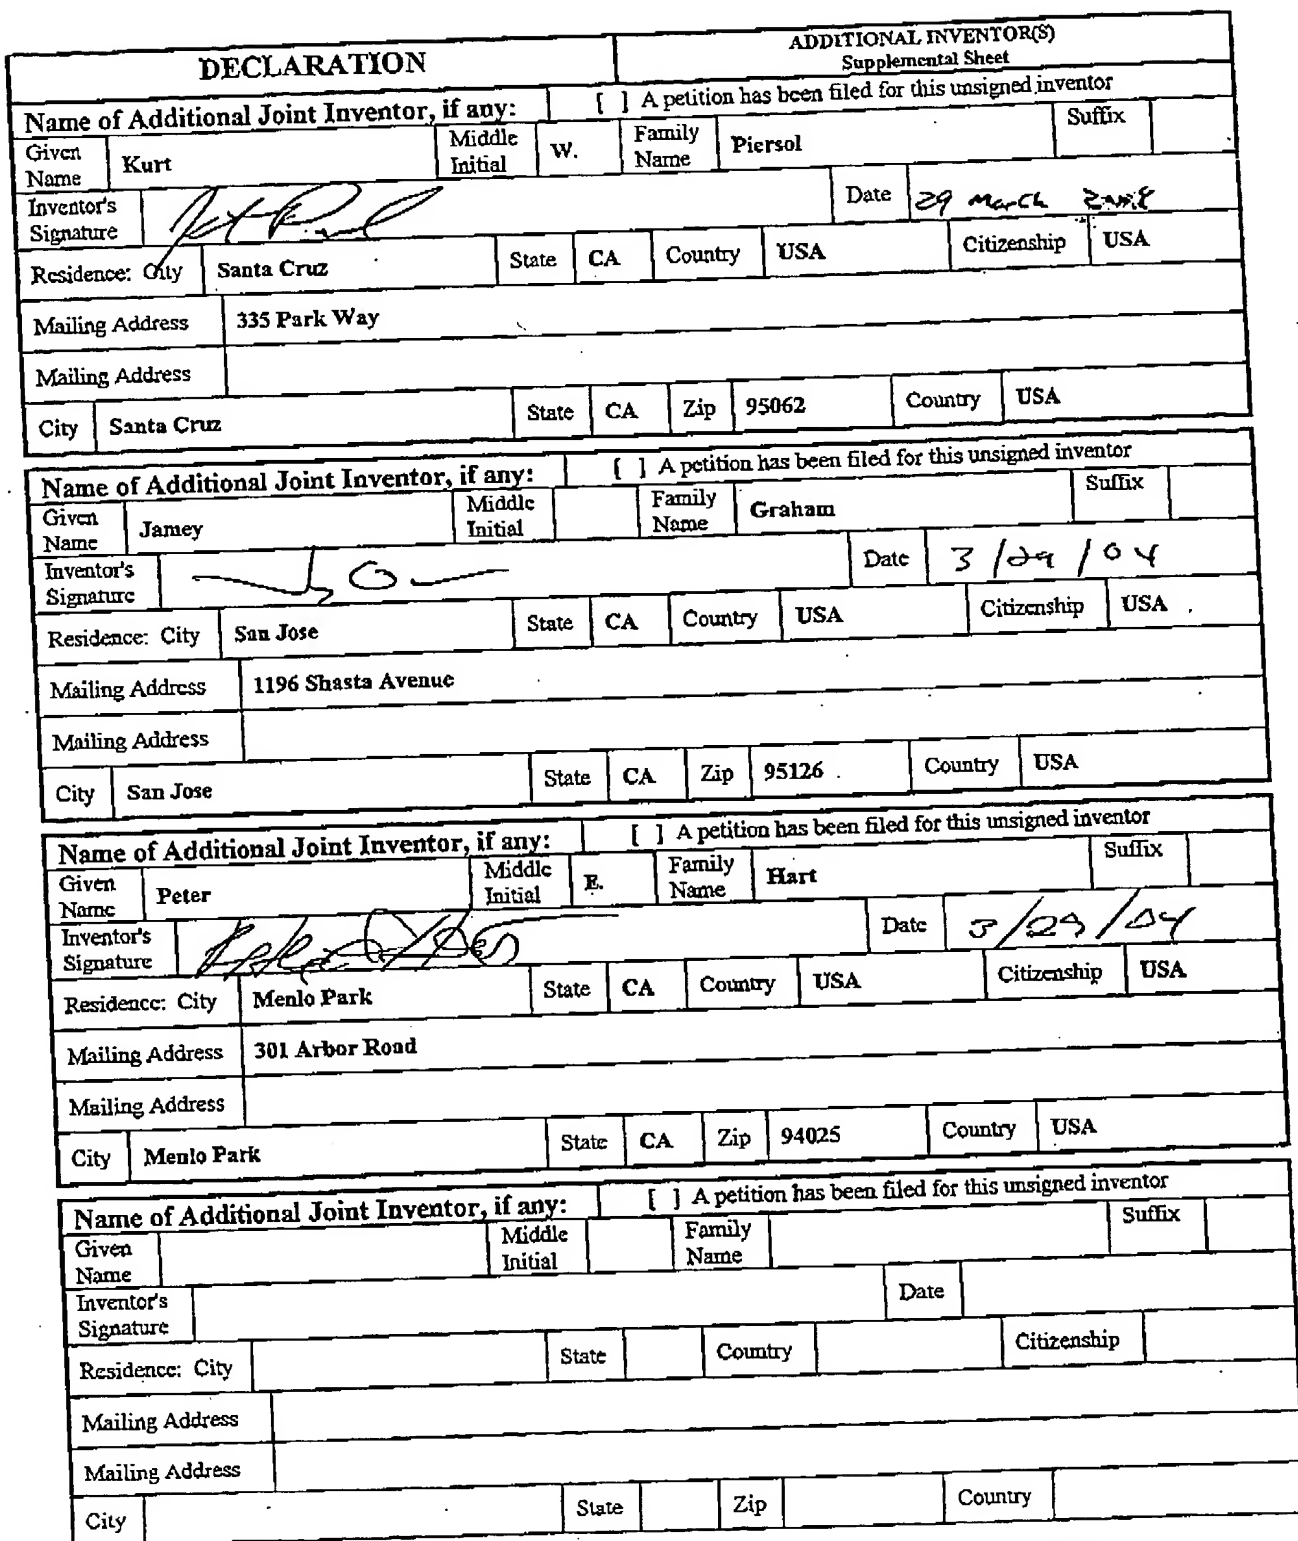 DECLARATION
ADDITIONAL INVENTOR(S)
Supplemental Sheet
Name of Additional Joint Inventor, if any: [ ] A petition has been filed for this unsigned inventor
Given Name Kurt Middle Initial W. Family Name Piersol Suffix
Inventor's Signature Date 29 March
Residence: City Santa Cruz State CA Country USA Citizenship USA
Mailing Address 335 Park Way
Mailing Address
City Santa Cruz State CA Zip 95062 Country USA
Name of Additional Joint Inventor, if any: [ ] A petition has been filed for this unsigned inventor
Given Name Jamey Middle Initial Family Name Graham Suffix
Inventor's Signature Date 3/29/04
Residence: City San Jose State CA Country USA Citizenship USA
Mailing Address 1196 Shasta Avenue
Mailing Address
City San Jose State CA Zip 95126 Country USA
Name of Additional Joint Inventor, if any: [ ] A petition has been filed for this unsigned inventor
Given Name Peter Middle Initial E. Family Name Hart Suffix
Inventor's Signature Date 3/29/04
Residence: City Menlo Park State CA Country USA Citizenship USA
Mailing Address 301 Arbor Road
Mailing Address
City Menlo Park State CA Zip 94025 Country USA
Name of Additional Joint Inventor, if any: [ ] A petition has been filed for this unsigned inventor
Given Name Middle Initial Family Name Suffix
Inventor's Signature Date
Residence: City State Country Citizenship
Mailing Address
Mailing Address
City State Zip Country